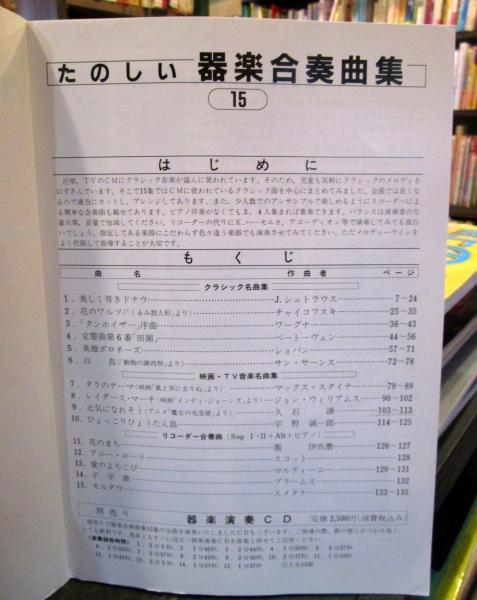 たのしい 器楽合奏曲集
15
はじめに
近頃、TVのCMにクラシック音楽が盛んに使われています。そのため、児童も気軽にクラシックのメロディを
口ずさんでいます。そこで15集ではCMに使われているクラシック曲を中心にまとめてみました。全曲では良くな
るので適当にカットし、アレンジしてあります。また、少人数でのアンサンブルで楽しめるようにリコーダーによ
る簡単な合奏曲も載せてあります。ピアノ伴奏がなくても3、4人集まれば重奏できます。バランスは演奏者の力
量六等、音量で加減してください。リコーダーの代りにK.ハーモニカ、アコーディオン等で演奏してみても面白
いでしょう。指定してある楽器にこだわらず色々違う楽器でも演奏させてみてください。ただメロディーラインを
よく把握して指導することが大切です。
もくじ
曲名 作曲者 ページ
クラシック名曲集
1. 美しく青きドナウ J.シュトラウス 7~24
2. 花のワルツ(「くるみ割人形」より) チャイコフスキ 25~35
3. 「タンホイザー」序曲 ワーグナー 36~43
4. 交響曲第6番「田園」 ベートーヴェン 44~56
5. 英雄ポロネーズ ショパン 57~71
6. 白鳥(「動物の謝肉祭」より) サン・サーンス 72~78
映画・TV音楽名曲集
7. タラのテーマ(映画「風と共に去りぬ」より) マックス・スタイナ 79~89
8. レイダース・マーチ(映画「インディ・ジョーンズ」より) ジョン・ウィリアムス 90~102
9. 元気になれそう(アニメ「魔女の宅急便」より) 久石譲 103~113
10. ひょっこりひょうたん島 宇野誠一郎 114~125
リコーダー合奏曲(Sop I・II+Alt+ピアノ)
11. 花のまち 團伊玖磨 126~127
12. アニー・ローリ スコット 128
13. 愛のよろこび マルティーニ 129~131
14. 子守歌 ブラームス 132
15. モルダウ スメタナ 133~135
別売り 器楽演奏CD 定価2,500円(消費税込み)